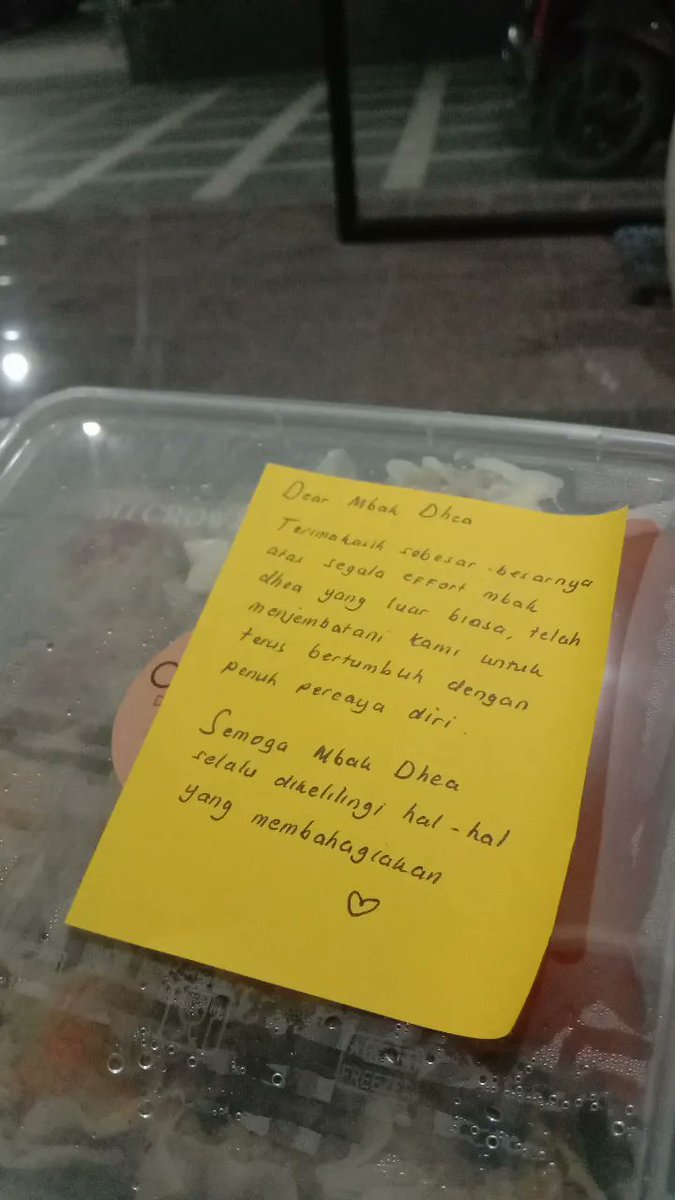 Dear Mbak Dhea
Terimakasih sebesar-besarnya
atas segala effort mbak
dhea yang luar biasa, telah
menjembatani kami untuk
terus bertumbuh dengan
penuh percaya diri.
Semoga Mbak Dhea
selalu dikelilingi hal-hal
yang membahagiakan
FREEZER